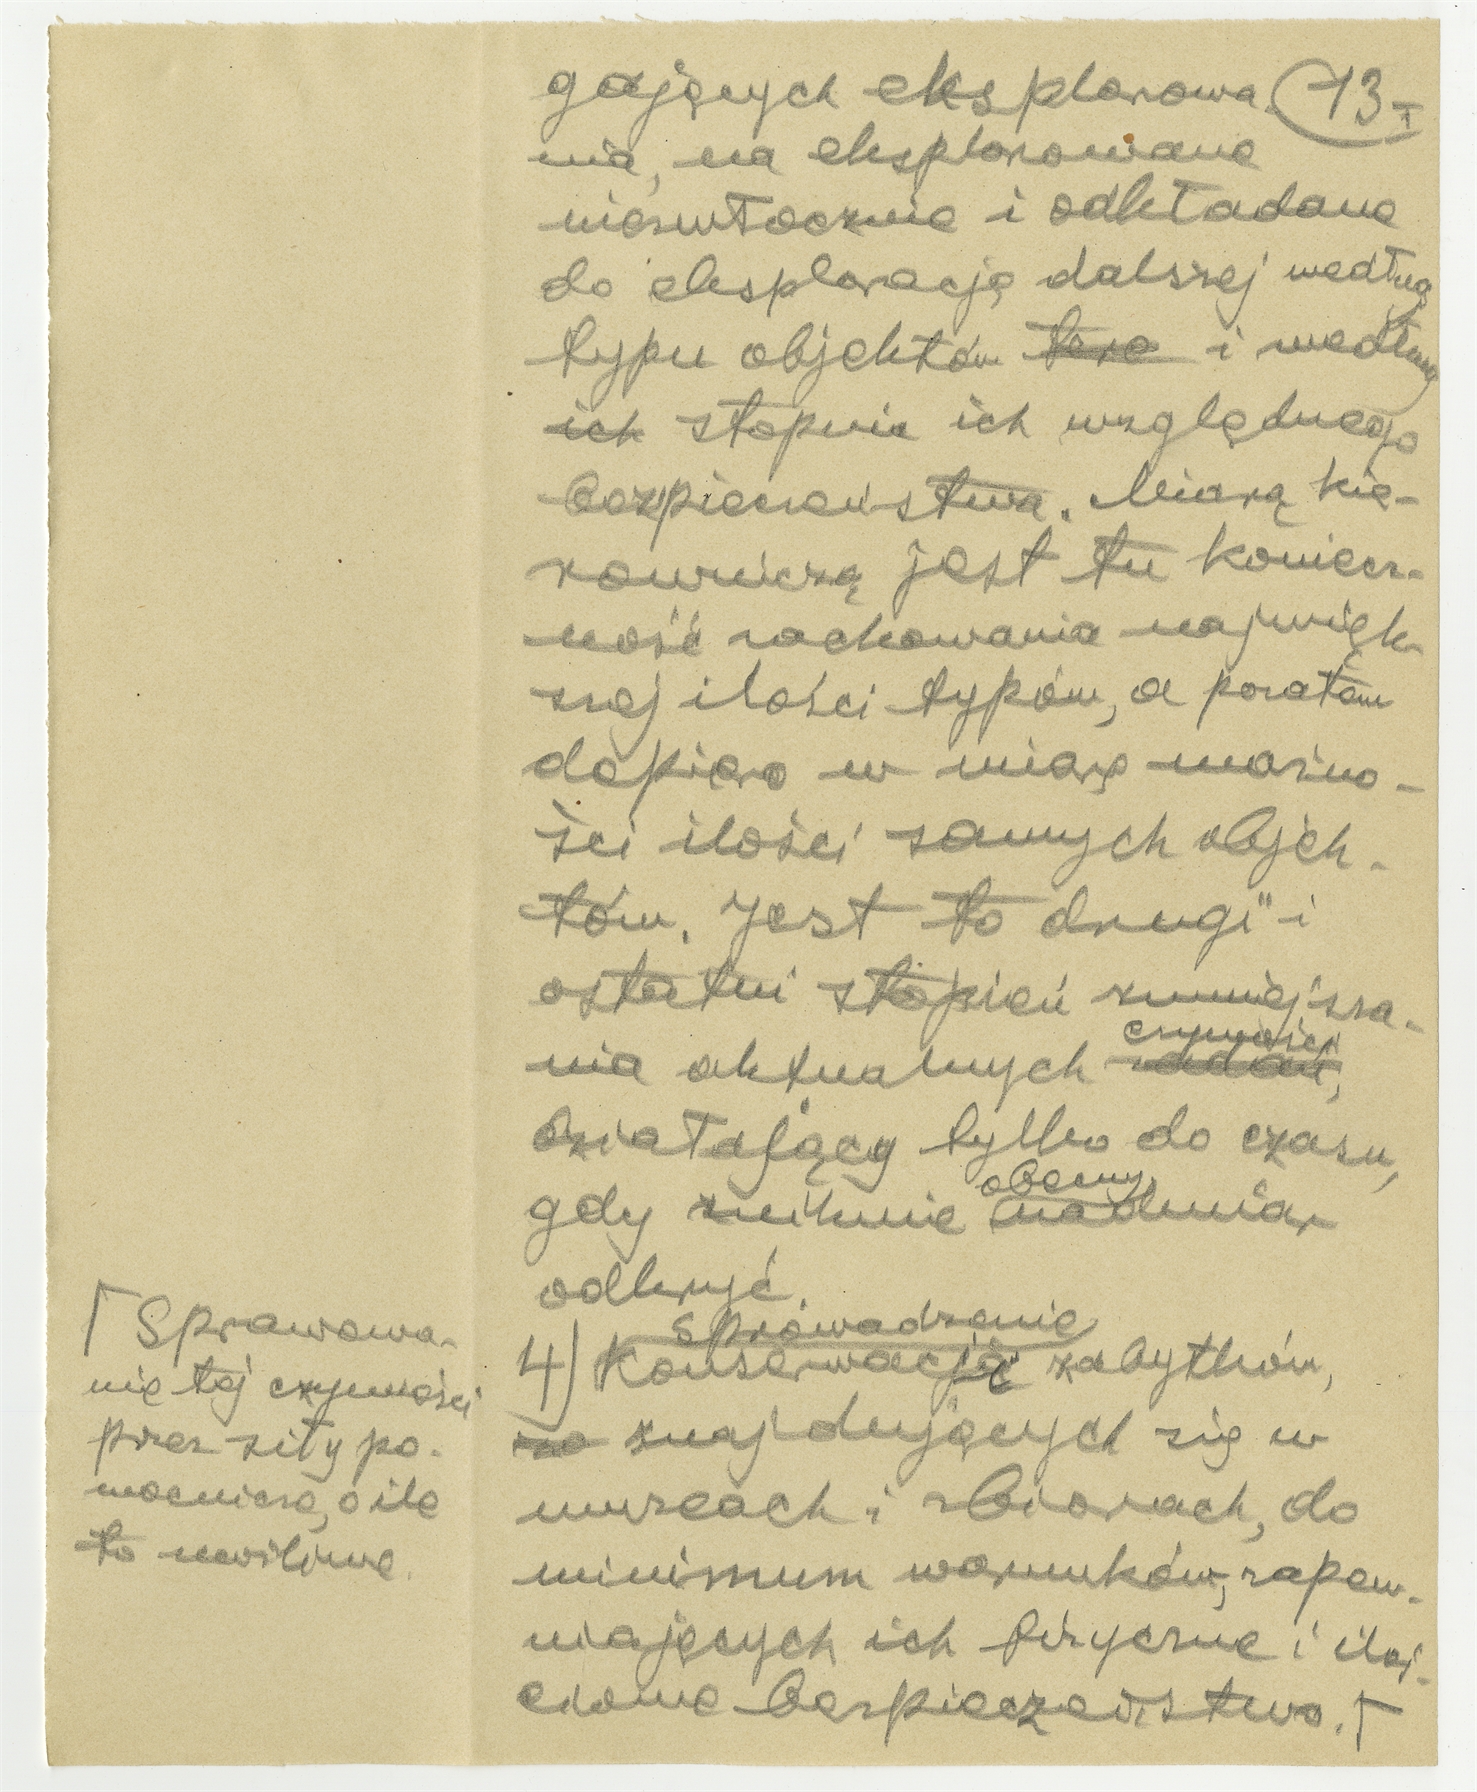 gających eksplorowa- 13 I
nia, na eksplorowane
niezwłocznie i odkładane
do eksplorację dalszej według
typu objektów i według
ich stopnia ich względnego
bezpieczeństwa. Miarą kie-
rowniczą jest tu koniecz-
ność zachowania najwięk-
szej ilości typów, a pozatem
dopiero w miarę możno-
ści ilości samych objek-
tów. Jest to drugi i
ostatni stopień zmniejsza-
czynności
nia aktualnych zadań,
działający tylko do czasu,
obecny
gdy zniknie nadmiar
odkryć.
Sprowadzenie
4) Konserwację zabytków,
znajdujących się w
muzeach i zbiorach, do
minimum warunków, zapew-
niających ich fizyczne i iloś-
ciowe bezpieczeństwo. Γ
Γ Sprawowa-
nie tej czynności
przez siły po-
mocnicze, o ile
to możliwe.